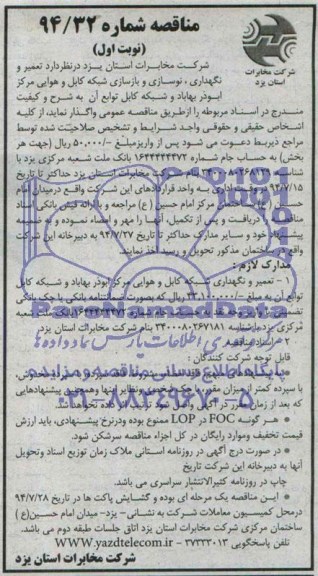 مناقصه شماره ۹۴/۳۲
(نوبت اول)
شرکت مخابرات
استان یزد
شرکت مخابرات استان یزد درنظردارد تعمیر و
نگهداری ، نوسازی و بازسازی شبکه کابل و هوایی مرکز
ابوذر بهاباد و شبکه کابل توابع آن به شرح و کیفیت
مندرج در اسناد مربوطه را ازطریق مناقصه عمومی واگذار نماید، از کلیه
اشخاص حقیقی و حقوقی واجد شرایط و تشخیص صلاحیت شده توسط
مراجع ذیربط دعوت می شود پس از واریزمبلغ -/۵۰,۰۰۰ ریال (جهت هر
بخش) به حساب جام شماره ۱۶۴۴۴۴۴۴۷۲ بانک ملت شعبه مرکزی یزد با
شناسه بنام شرکت مخابرات استان یزد حداکثر تا تاریخ
۹۴/۷/۱۵ در وقت اداری به واحد قراردادهای این شرکت واقع درمیدان امام
حسین (ع) ساختمان مرکز امام حسین (ع) مراجعه و با ارائه فیش بانکی اسناد
مناقصه را دریافت و پس از تکمیل، آنها را مهر و امضاء نموده و به ضمیمه
پیشنهاد خود و سایر مدارک حداکثر تا تاریخ ۹۴/۷/۲۷ به دبیرخانه این شرکت
واقع در ساختمان مذکور تحویل و رسید اخذ نمایند.
مدارک لازم :
۱ – تعمیر و نگهداری شبکه کابل و هوایی مرکز ابوذر بهاباد و شبکه کابل
توابع آن به مبلغ ریال که بصورت ضمانتنامه بانکی یا چک بانکی
بانک ملت شعبه
مرکزی یزد باشناسه ۳۴۰۰۰۸۰۲۶۷۱۸۱ بنام شرکت مخابرات استان یزد
۲ – اسناد مناقصه
قابل توجه شرکت کنندگان :
سپرده کمتر از میزان مقرر، چک شخصی و نظایر اینها وهمچنین پیشنهادهایی
که بعد از زمان مقرر در آگهی واصل شود ترتیب اثر داده نخواهد شد.
• هر گونه FOC در LOP ممنوع بوده ودرنرخ پیشنهادی، باید ارزش
قیمت تخفیف وموارد رایگان در کل اجزاء مناقصه سرشکن شود.
• در صورت درج آگهی در روزنامه استانی ملاک زمان توزیع اسناد وتحویل
آنها به دبیرخانه این شرکت تاریخ
چاپ در روزنامه کثیرالانتشار سراسری می باشد.
• این مناقصه یک مرحله ای بوده و گشایش پاکت ها در تاریخ ۹۴/۷/۲۸
درمحل کمیسیون معاملات شرکت به نشانی – یزد– میدان امام حسین(ع)
ساختمان مرکزی شرکت مخابرات استان یزد اتاق جلسات طبقه دوم می باشد.
تلفن پاسخگویی ۳۷۲۳۳۰۱۳ – WWW.yazdtelecom.ir
شرکت مخابرات استان یزد
پایگاه اطلاع رسانی مناقصه و مزایده
۰۲۱-۸۸۳۴۹۶۷۰-۵